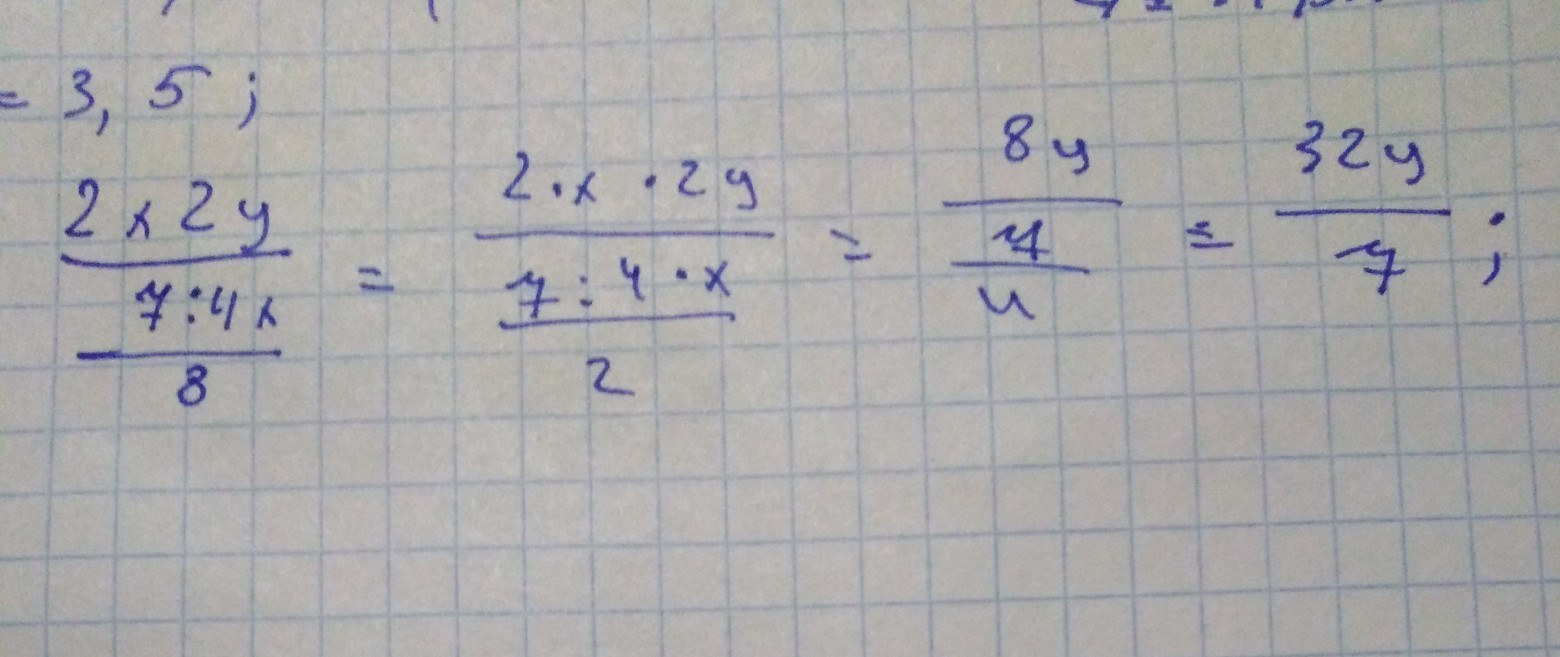 = 3,5;
2x2y / 7:4x / 8 = 2·x·2y / 7:4·x / 2 = 8y / 7 / 4 = 32y / 7;